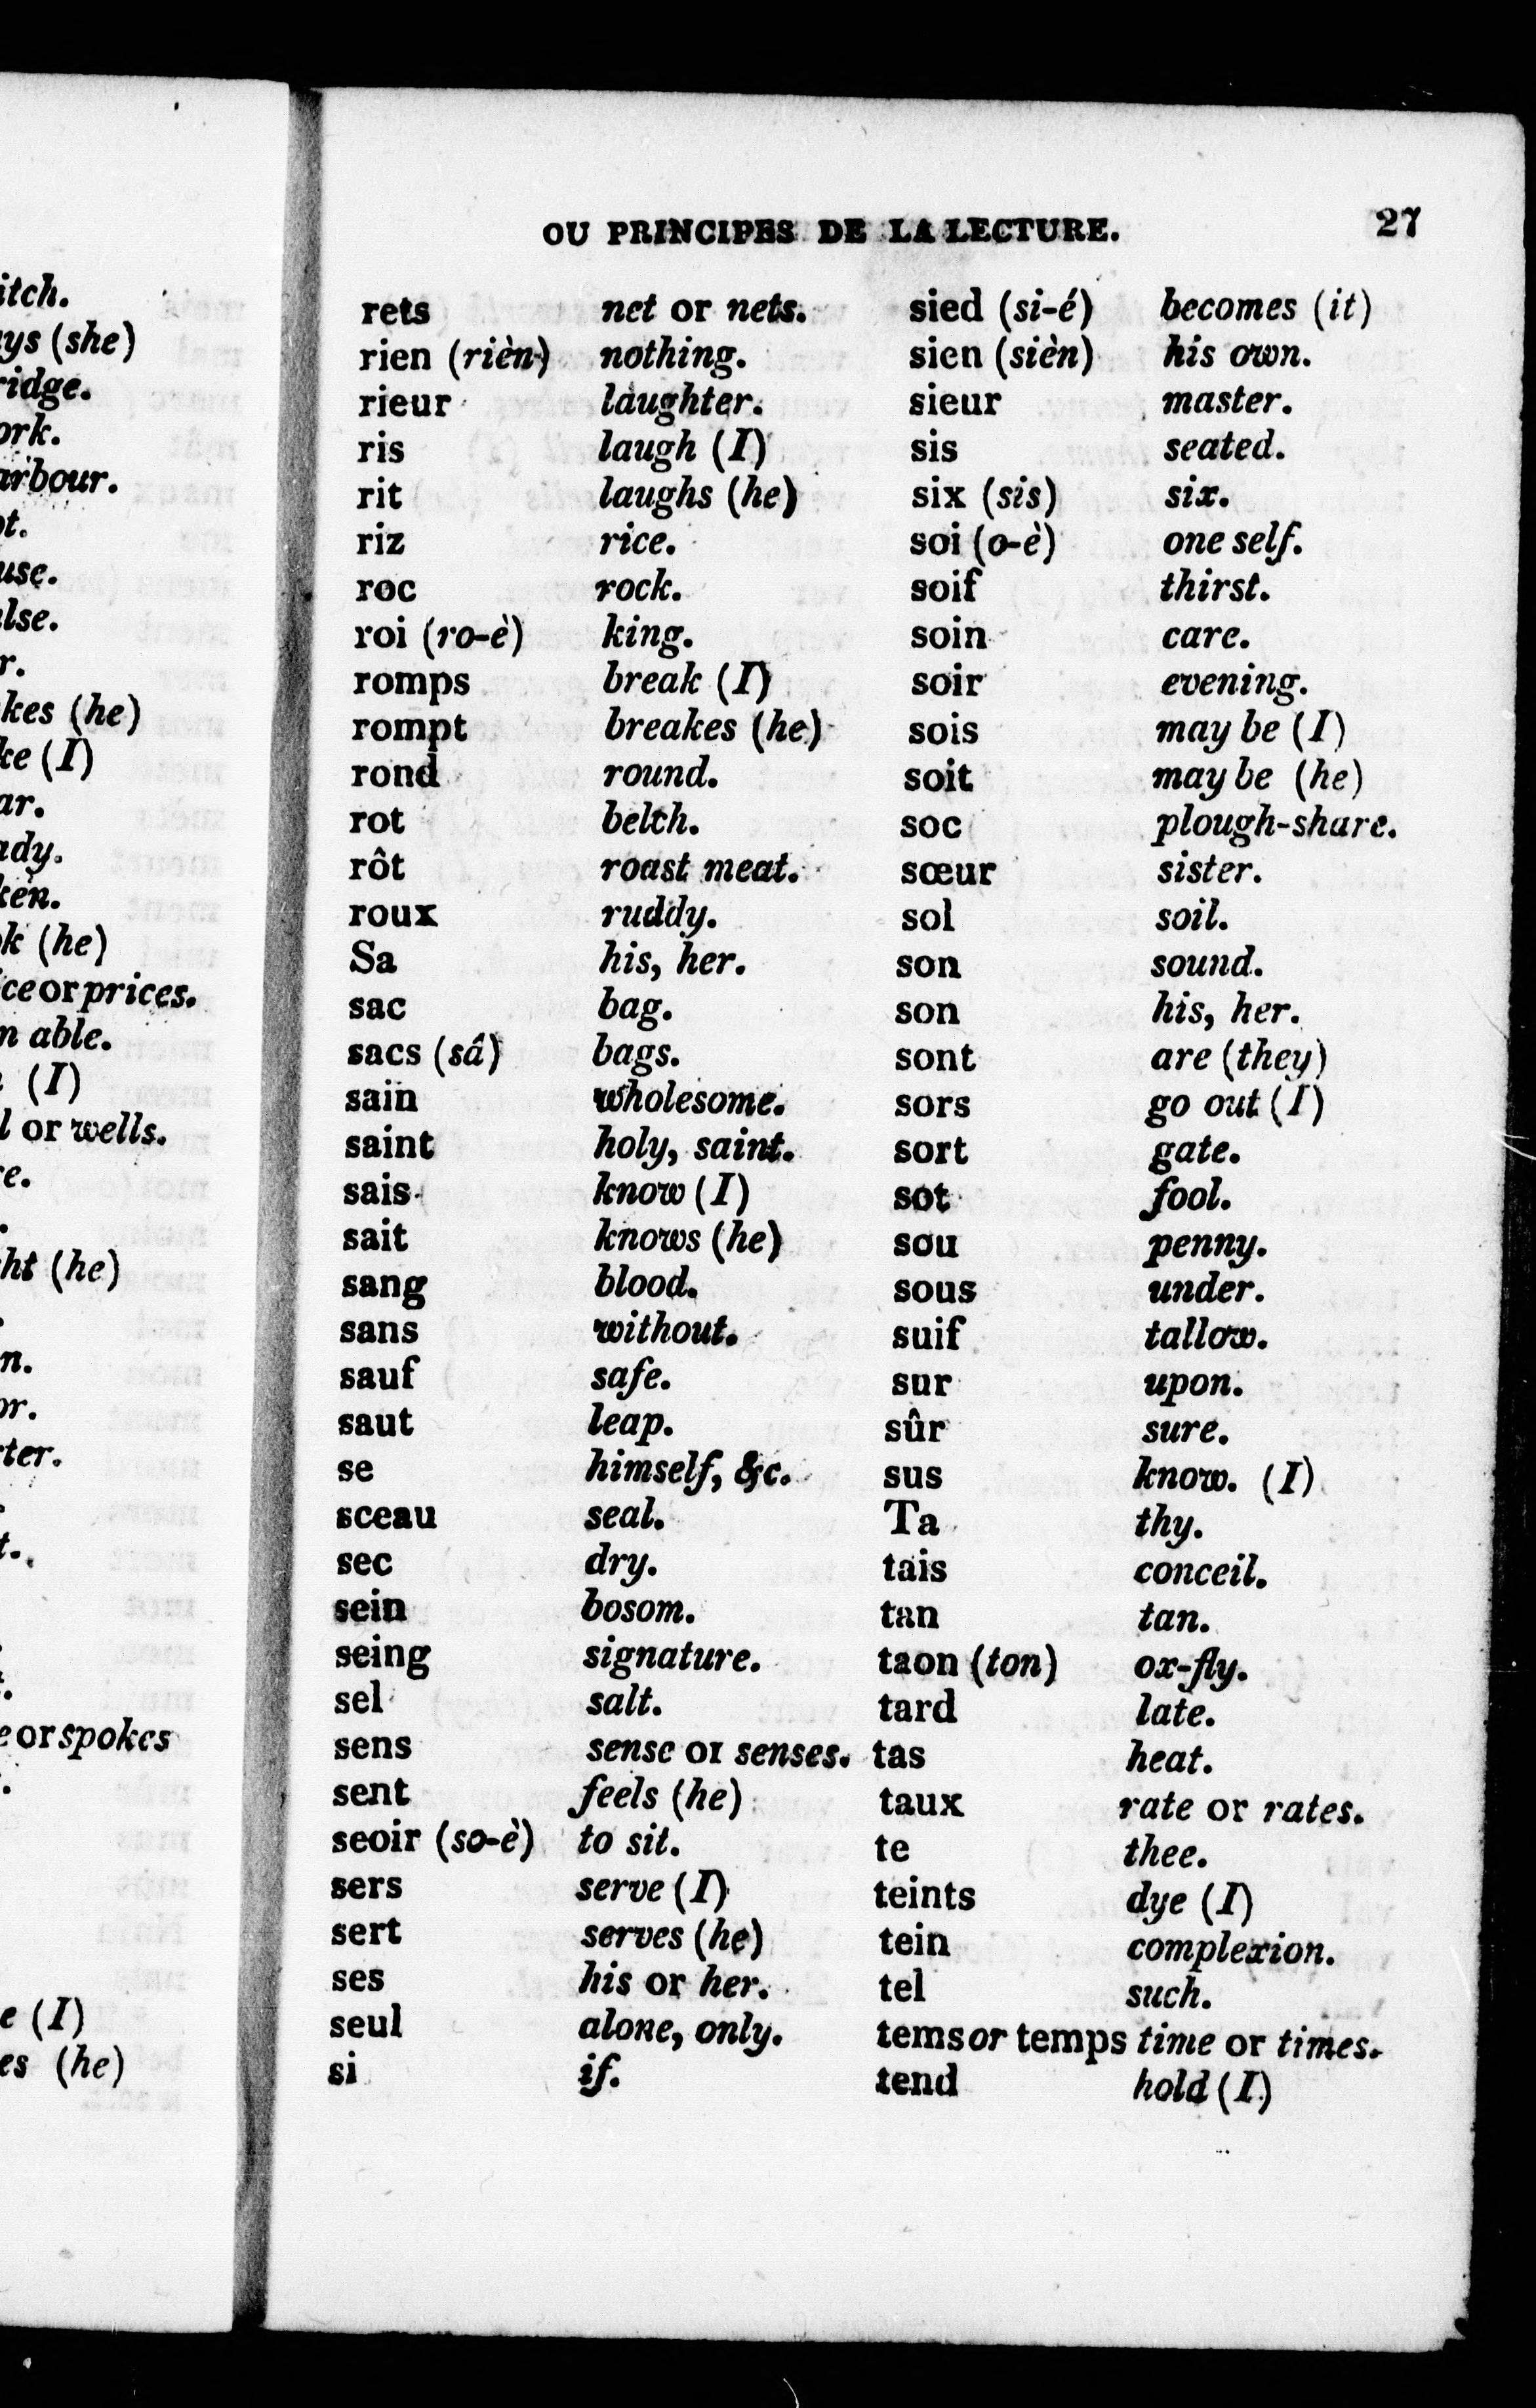 itch.
ys (she)
ridge.
ork.
arbour.
ot.
use.
lse.
r.
kes (he)
ke (I)
ar.
ady.
ken.
ok (he)
ce or prices.
n able.
(I)
l or wells.
e.
ht (he)
n.
or.
ter.
t.
e or spokes
e (I)
es (he)
OU PRINCIPES DE LA LECTURE. 27
rets net or nets.
rien (rièn) nothing.
rieur laughter.
ris laugh (I)
rit laughs (he)
riz rice.
roc rock.
roi (ro-è) king.
romps break (I)
rompt breakes (he)
rond round.
rot belch.
rôt roast meat.
roux ruddy.
Sa his, her.
sac bag.
sacs (sâ) bags.
sain wholesome.
saint holy, saint.
sais know (I)
sait knows (he)
sang blood.
sans without.
sauf safe.
saut leap.
se himself, &c.
sceau seal.
sec dry.
sein bosom.
seing signature.
sel salt.
sens sense or senses.
sent feels (he)
seoir (so-è) to sit.
sers serve (I)
sert serves (he)
ses his or her.
seul alone, only.
si if.
sied (si-é) becomes (it)
sien (sièn) his own.
sieur master.
sis seated.
six (sis) six.
soi (o-è) one self.
soif thirst.
soin care.
soir evening.
sois may be (I)
soit may be (he)
soc plough-share.
sœur sister.
sol soil.
son sound.
son his, her.
sont are (they)
sors go out (I)
sort gate.
sot fool.
sou penny.
sous under.
suif tallow.
sur upon.
sûr sure.
sus know. (I)
Ta thy.
tais conceil.
tan tan.
taon (ton) ox-fly.
tard late.
tas heat.
taux rate or rates.
te thee.
teints dye (I)
tein complexion.
tel such.
tems or temps time or times.
tend hold (I)